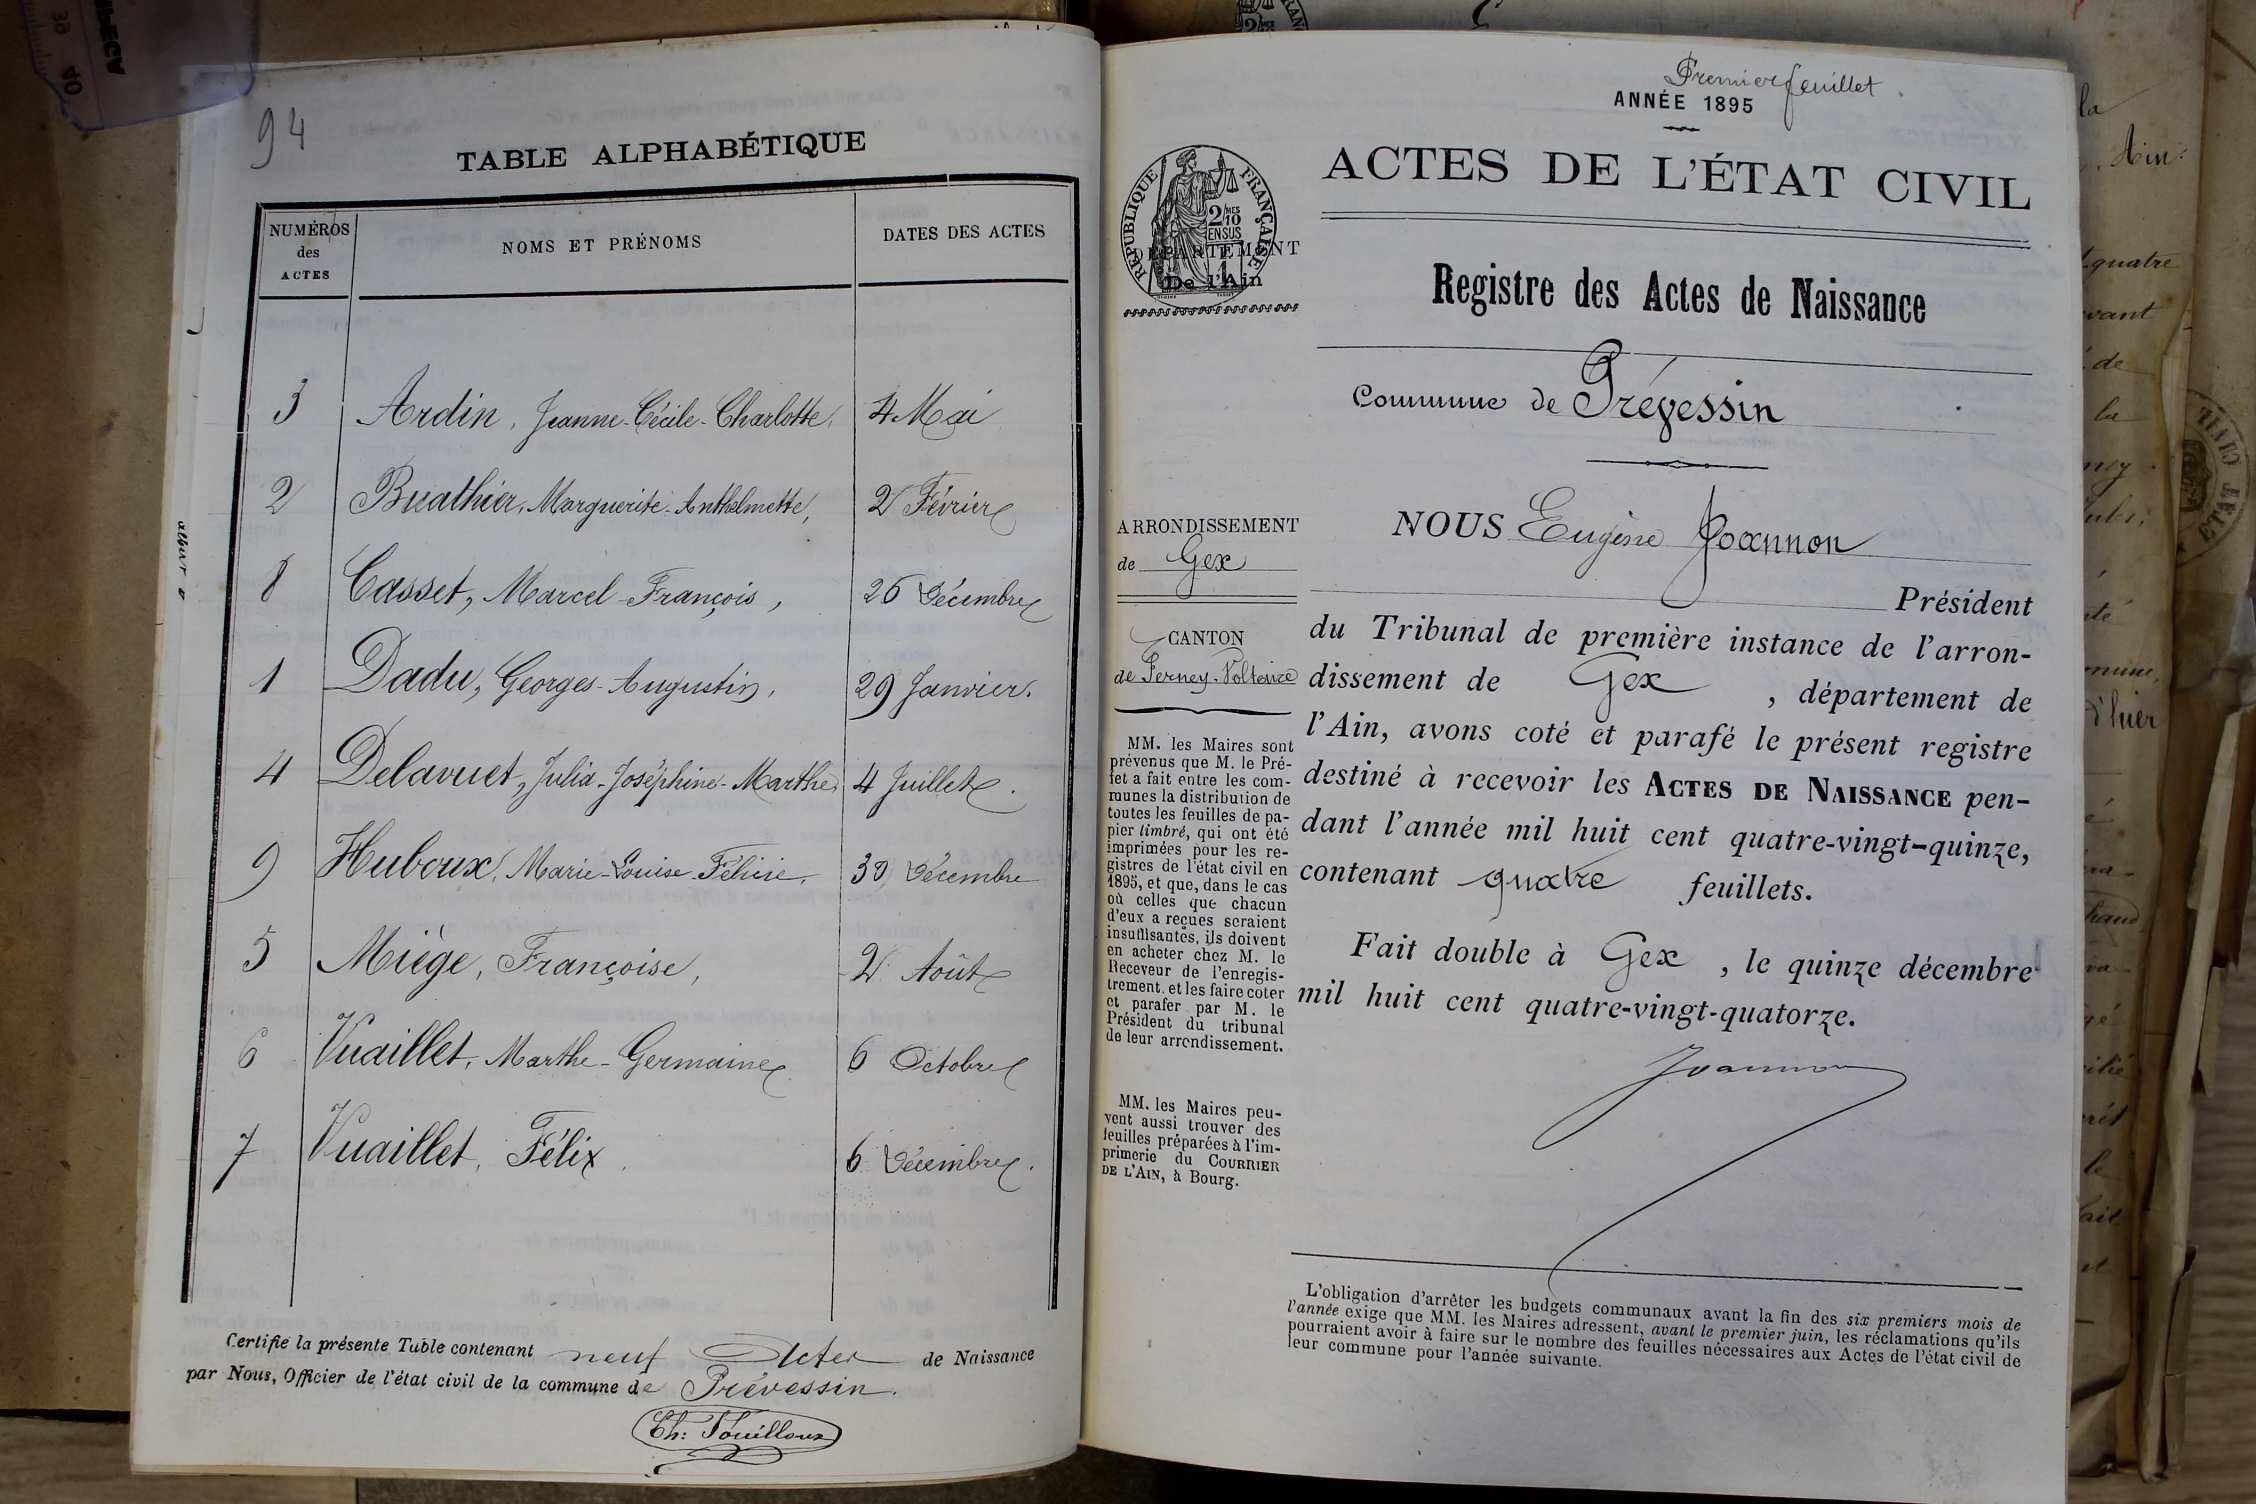 94
TABLE ALPHABÉTIQUE
NUMÉROS des ACTES
NOMS ET PRÉNOMS
DATES DES ACTES
3 Ardin, Jeanne-Cécile-Charlotte, 4 Mai
2 Buathier, Marguerite-Anthelmette, 2 Février
8 Casset, Marcel-François, 26 Décembre
1 Dadu, Georges-Augustin, 29 Janvier.
4 Delavuet, Julia-Joséphine-Marthe, 4 Juillet.
9 Huboux, Marie-Louise-Félicie, 30 Décembre
5 Miège, Françoise, 2 Août
6 Vuaillet, Marthe-Germaine 6 Octobre
7 Vuaillet, Félix. 6 Décembre.
Certifie la présente Table contenant neuf Actes de Naissance
par Nous, Officier de l'état civil de la commune de Prévessin.
Ch: Fouilloux
Premier feuillet
ANNÉE 1895
ACTES DE L'ÉTAT CIVIL
RÉPUBLIQUE FRANÇAISE
2/10 MES
EN SUS
DÉPARTEMENT
De l'Ain
Registre des Actes de Naissance
Commune de Prévessin
ARRONDISSEMENT
de Gex
CANTON
de Ferney-Voltaire
MM. les Maires sont
prévenus que M. le Pré-
fet a fait entre les com-
munes la distribution de
toutes les feuilles de pa-
pier timbré, qui ont été
imprimées pour les re-
gistres de l'état civil en
1895, et que, dans le cas
où celles que chacun
d'eux a reçues seraient
insuffisantes, ils doivent
en acheter chez M. le
Receveur de l'enregis-
trement, et les faire coter
et parafer par M. le
Président du tribunal
de leur arrondissement.
MM. les Maires peu-
vent aussi trouver des
feuilles préparées à l'im-
primerie du COURRIER
DE L'AIN, à Bourg.
NOUS Eugène Joannon
Président
du Tribunal de première instance de l'arron-
dissement de Gex, département de
l'Ain, avons coté et parafé le présent registre
destiné à recevoir les ACTES DE NAISSANCE pen-
dant l'année mil huit cent quatre-vingt-quinze,
contenant quatre feuillets.
Fait double à Gex, le quinze décembre
mil huit cent quatre-vingt-quatorze.
Joannon
L'obligation d'arrêter les budgets communaux avant la fin des six premiers mois de
l'année exige que MM. les Maires adressent, avant le premier juin, les réclamations qu'ils
pourraient avoir à faire sur le nombre des feuilles nécessaires aux Actes de l'état civil de
leur commune pour l'année suivante.
la
Ain
quatre
vant
de
la
mune,
d'hier
le